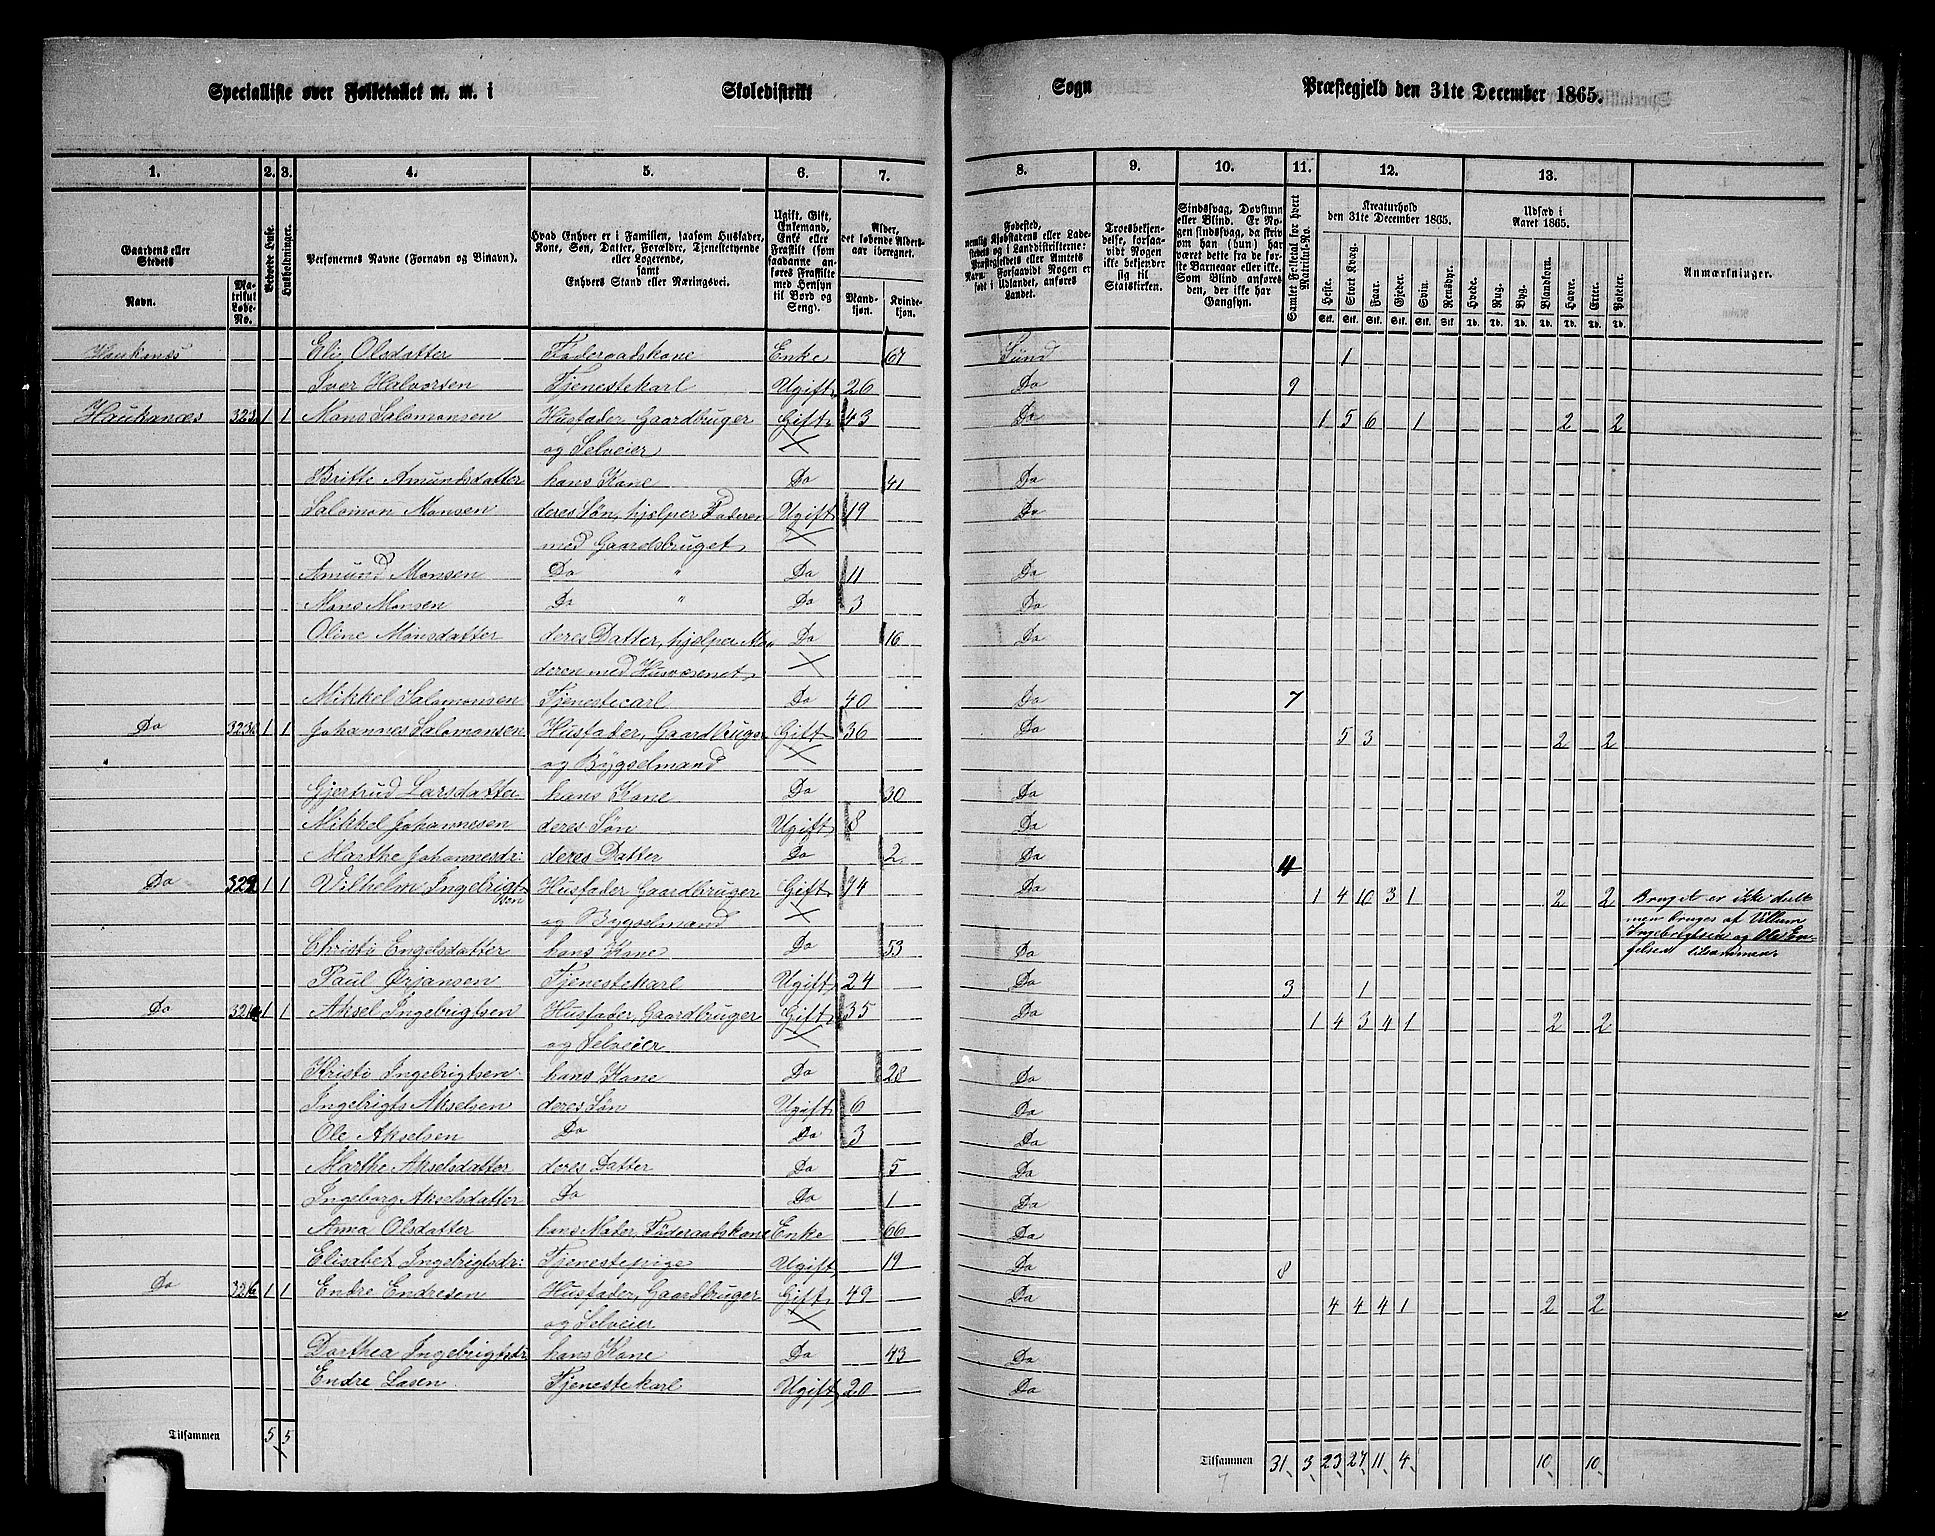 Specialliste over Folketallet m. m. i Skoledistrikt Sogn Præstegjeld den 31te December 1865.
1. 2. 3. 4. 5. 6. 7. 8. 9. 10. 11. 12. 13.
Gaardens eller Stedets Navn. Matrikul Løbe-No. Beboede Huse. Husholdninger. Personernes Navne (Fornavn og Binavn).
Hvad Enhver er i Familien, saasom Husfader, Kone, Søn, Datter, Forældre, Tjenestetyende eller Logerende, samt Enhvers Stand eller Næringsvei.
Ugift, Gift, Enkemand, Enke eller Fraskilt (som saadanne anføres Fraskilte med Hensyn til Bord og Seng).
Alder, det løbende Aldersaar iberegnet. Mandkjøn. Kvindekjøn.
Trosbekjendelse, forsaavidt Nogen ikke bekjender sig til Statskirken.
Samlet Folketal for hvert Matrikul-No.
Kreaturhold den 31te December 1865. Heste. Stort Kvæg. Faar. Gjeder. Svin. Rensdyr.
Udsæd i Aaret 1865. Hvede. Rug. Byg. Blandkorn. Havre. Erter. Poteter.
Anmærkninger.
Haukanæs Eli Olsdatter Føderaadskone Enke 67 Sund 1
Iver Halvorsen Tjenestekarl Ugift 26 Do 9
Haukanæs 323 1 1 Mons Salomonsen Husfader, Gaardbruger Gift 43 Do 1 5 6 1 2 2
og Selveier
Britte Amundsdatter hans Kone Do 41 Do
Salomon Monsen deres Søn, hjelper Faderen Ugift 19 Do
med Gaardsbruget
Amund Monsen Do " Do 11 Do
Mons Monsen Do " Do 3 Do
Oline Monsdatter deres Datter, hjelper Mo- Do 16 Do
deren med Husvæsenet
Mikkel Salomonsen Tjenestecarl Do 40 Do 7
Do 323 1 1 Johannes Salomonsen Husfader, Gaardbruger Gift 36 Do 5 3 2 2
og Bygselmand
Gjertrud Larsdatter hans Kone Do 30 Do
Mikkel Johannesen deres Søn Ugift 8 Do
Marthe Johannesdr: deres Datter Do 2 Do 4
Do 1 1 Vilhelm Ingebrigtsen Husfader Gaardbruger Gift 74 Do 1 4 10 3 1 2 2 Bruget er ikke deelt
og Bygselmand men bruges af Villum
Christi Engelsdatter hans Kone Do 53 Do Ingebrigtsen og Ole En-
gelsen tilsammen
Paul Ørjansen Tjenestekarl Ugift 24 Do 3 1
Do 1 1 Aksel Ingebrigtsen Husfader, Gaardbruger Gift 35 Do 1 4 3 4 1 2 2
og Selveier
Kristi Ingebrigtsen hans Kone Do 28 Do
Ingebrigt Akselsen deres Søn Ugift 6 Do
Ole Akselsen Do Do 3 Do
Marthe Akselsdatter deres Datter Do 5 Do
Ingeborg Akselsdatter Do Do 1 Do
Anna Olsdatter hans Moder, Føderaadskone Enke 66 Do
Elisabet Ingebrigtsdr: Tjenestepige Ugift 19 Do 8
Do 1 1 Endre Endresen Husfader, Gaardbruger Gift 49 Do 4 4 4 1 2 2
og Selveier
Dorthea Ingebrigtsdr hans Kone Do 43 Do
Endre Lasen Tjenestekarl Ugift 20 Do
Tilsammen 5 5 Tilsammen 31 3 23 27 11 4 10 10
7